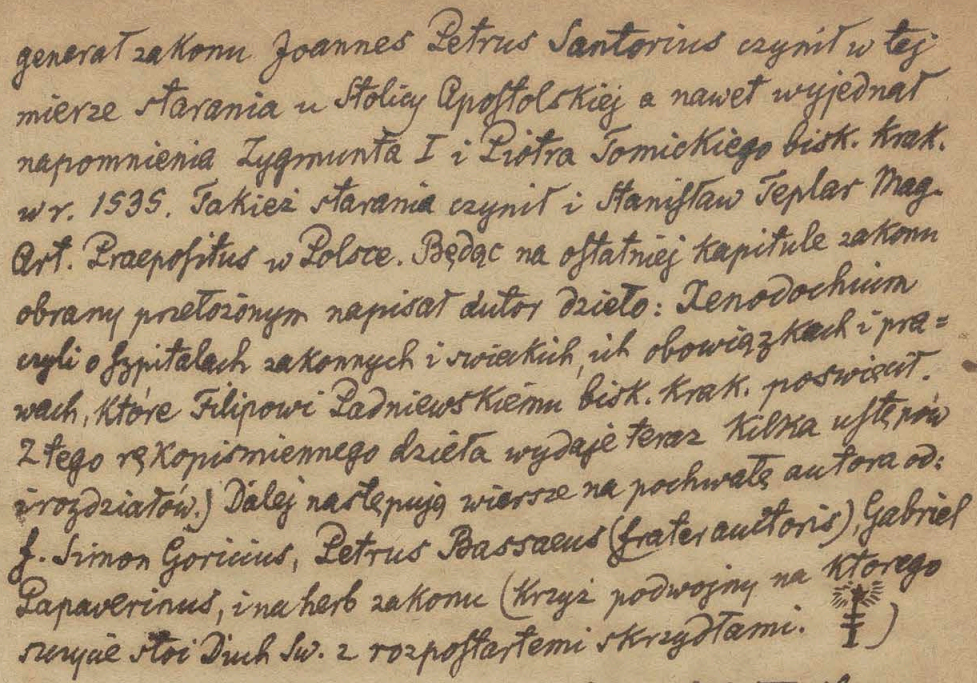 generał zakonu Joannes Petrus Santorius czynił w tej
mierze starania u Stolicy Apostolskiej a nawet wyjednał
napomnienia Zygmunta I i Piotra Tomickiego bisk. krak.
w r. 1535. Takież starania czynił i Stanisław Teplar Mag.
Art. Praepositus w Polsce. Będąc na ostatniej kapitule zakonu
obrany przełożonym napisał autor dzieło: Xenodochium
czyli o szpitalach zakonnych i swieckich, ich obowiązkach i pra=
wach, które Filipowi Padniewskiemu bisk. krak. poswięcił.
Z tego rękopismiennego dzieła wydaje teraz kilka ustępów
i rozdziałów.) Dalej następują wiersze na pochwałę autora od:
f. Simon Goricius, Petrus Bassaeus (frater auctoris), Gabriel
Papaverinus, i na herb zakonu (krzyż podwojny na ktorego
szczycie stoi Duch Sw. z rozpostartemi skrzydłami. )